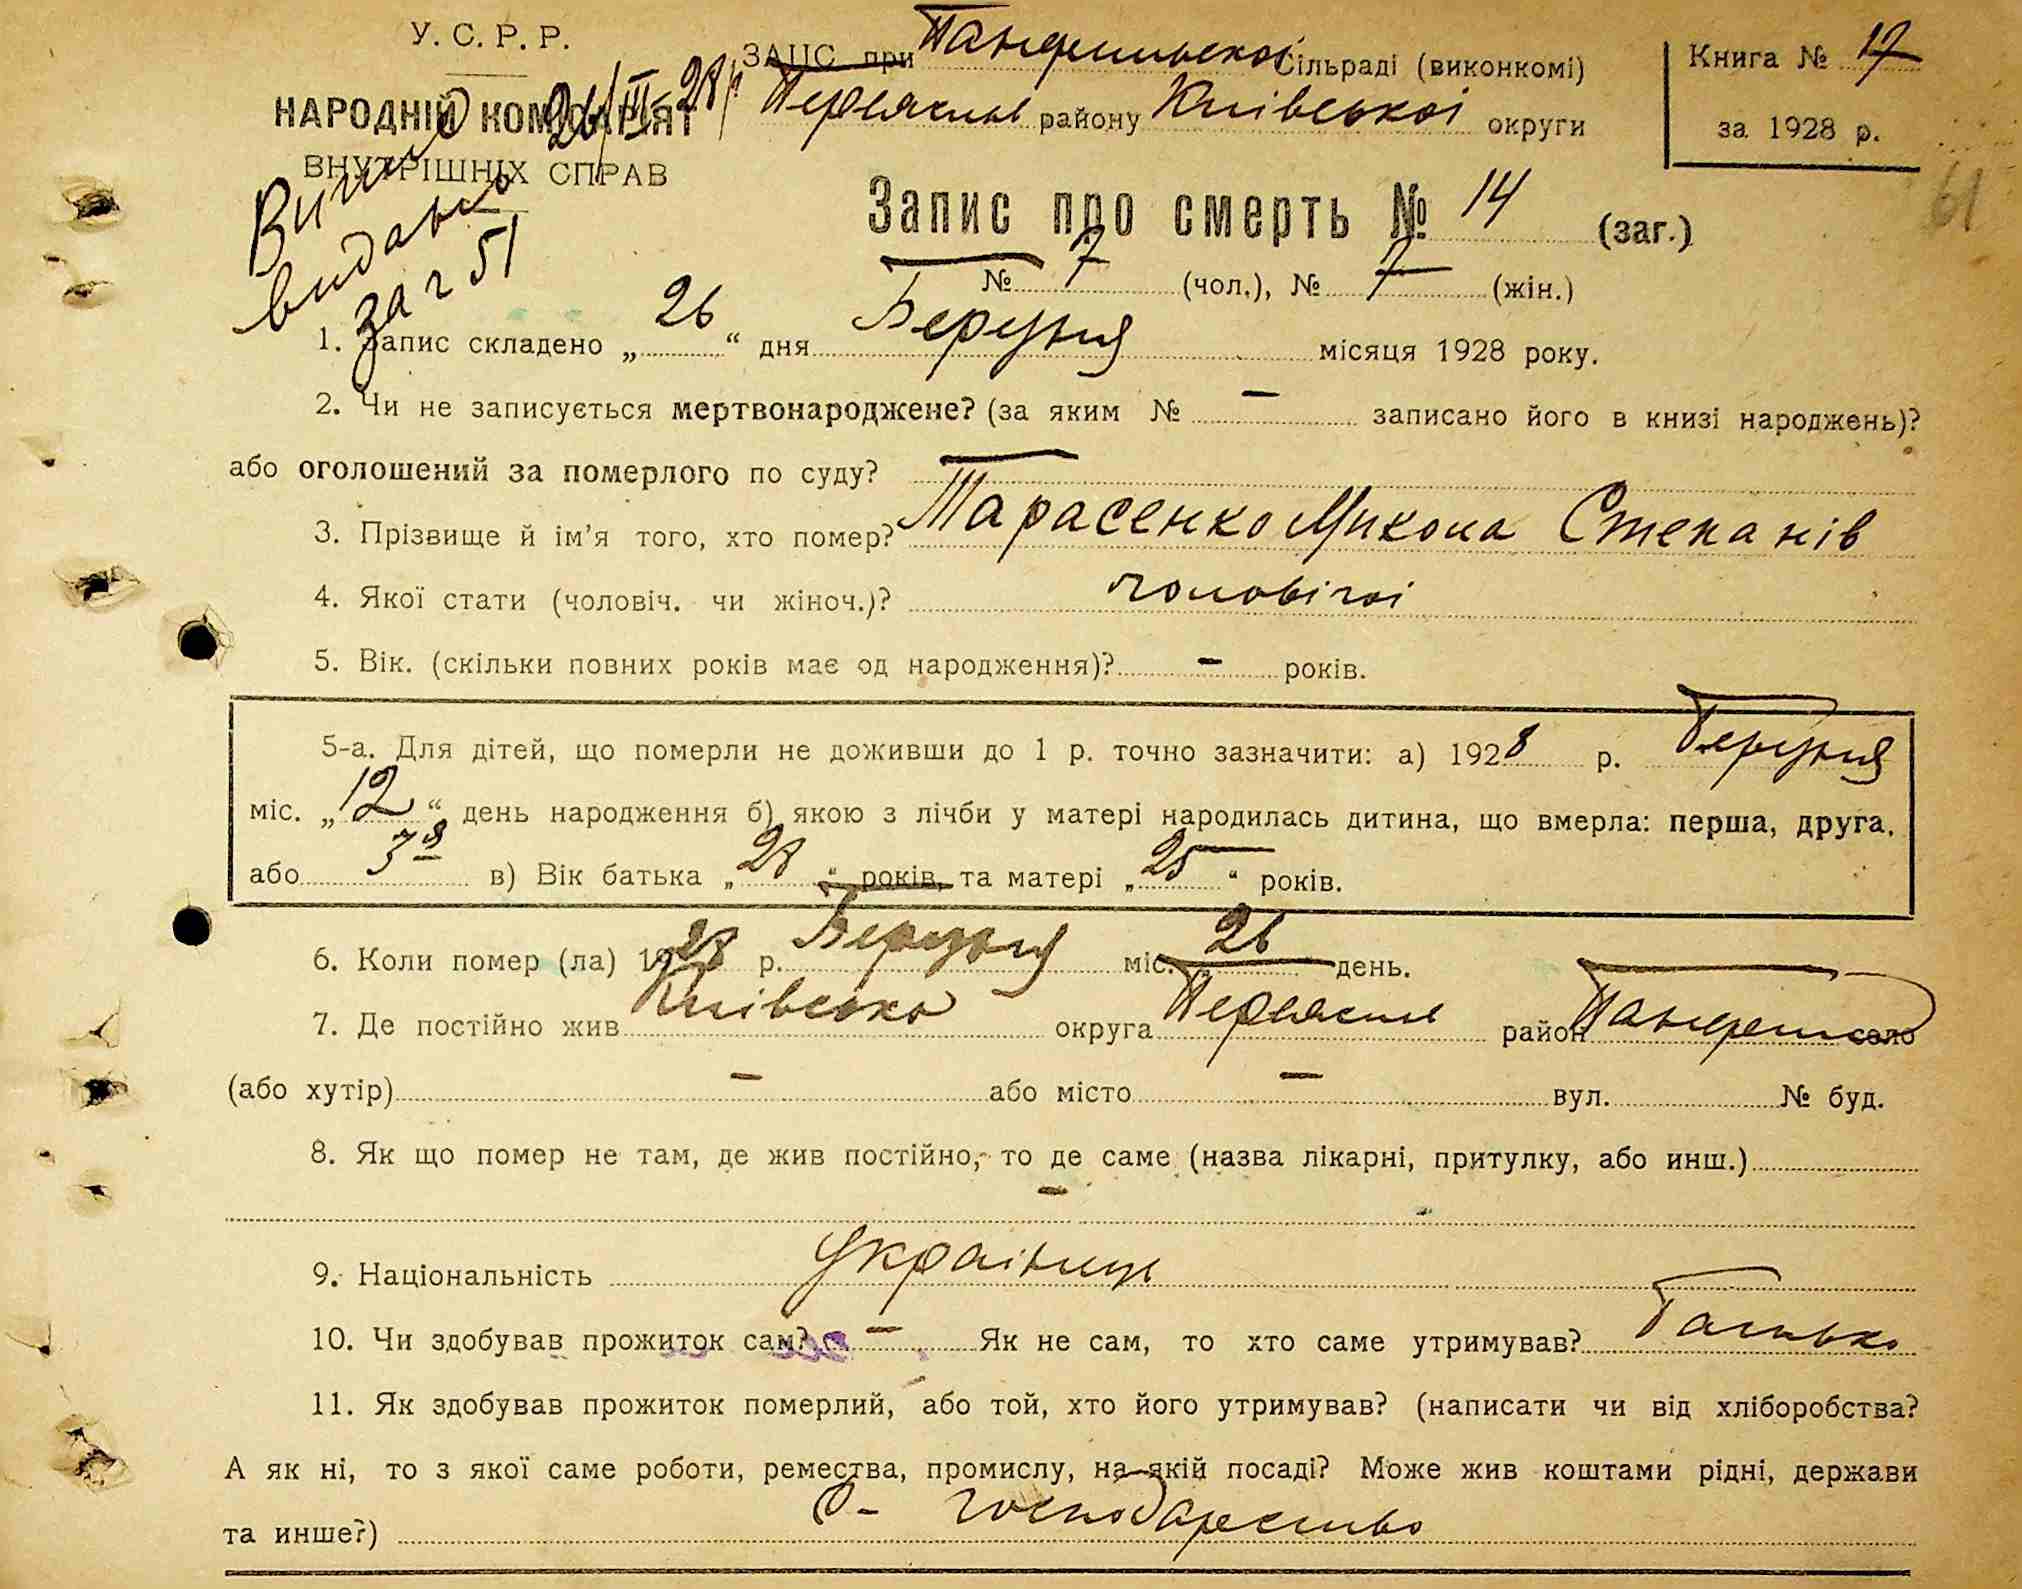 У. С. Р. Р.
НАРОДНІЙ КОМІСАРІЯТ
ВНУТРІШНІХ СПРАВ
26/III-28р
видано
за ч 51
ЗАЦС при Пандишської Сільраді (виконкомі)
Переяслів району Київської округи
Книга № 17
за 1928 р.
61
Запис про смерть № 14 (заг.)
№ 7 (чол.), № 7 (жін.)
1. Запис складено „ 26 “ дня Березня місяця 1928 року.
2. Чи не записується мертвонароджене? (за яким № – записано його в книзі народжень)?
або оголошений за померлого по суду? —
3. Прізвище й ім'я того, хто помер? Тарасенко Микола Степанів
4. Якої стати (чоловіч. чи жіноч.)? чоловічої
5. Вік. (скільки повних років має од народження)? – років.
5-а. Для дітей, що померли не доживши до 1 р. точно зазначити: а) 1928 р. Березня
міс. „ 12 “ день народження б) якою з лічби у матері народилась дитина, що вмерла: перша, друга,
або 3я в) Вік батька „ 28 “ років, та матері „ 25 “ років.
6. Коли помер (ла) 1928 р. Березня міс. „ 26 “ день.
7. Де постійно жив Київська округа Переяслів район село
(або хутір) – або місто – вул. № буд.
8. Як що помер не там, де жив постійно, то де саме (назва лікарні, притулку, або инш.)
–
9. Національність Українець
10. Чи здобував прожиток сам? – Як не сам, то хто саме утримував? Батько
11. Як здобував прожиток померлий, або той, хто його утримував? (написати чи від хліборобства?
А як ні, то з якої саме роботи, ремества, промислу, на якій посаді? Може жив коштами рідні, держави
та инше?) С- господарство